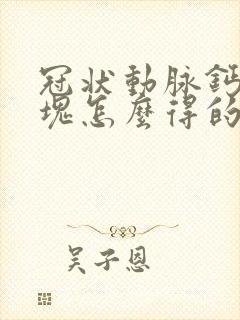 冠状動脉鈣
塊怎麼得的
吴子恩